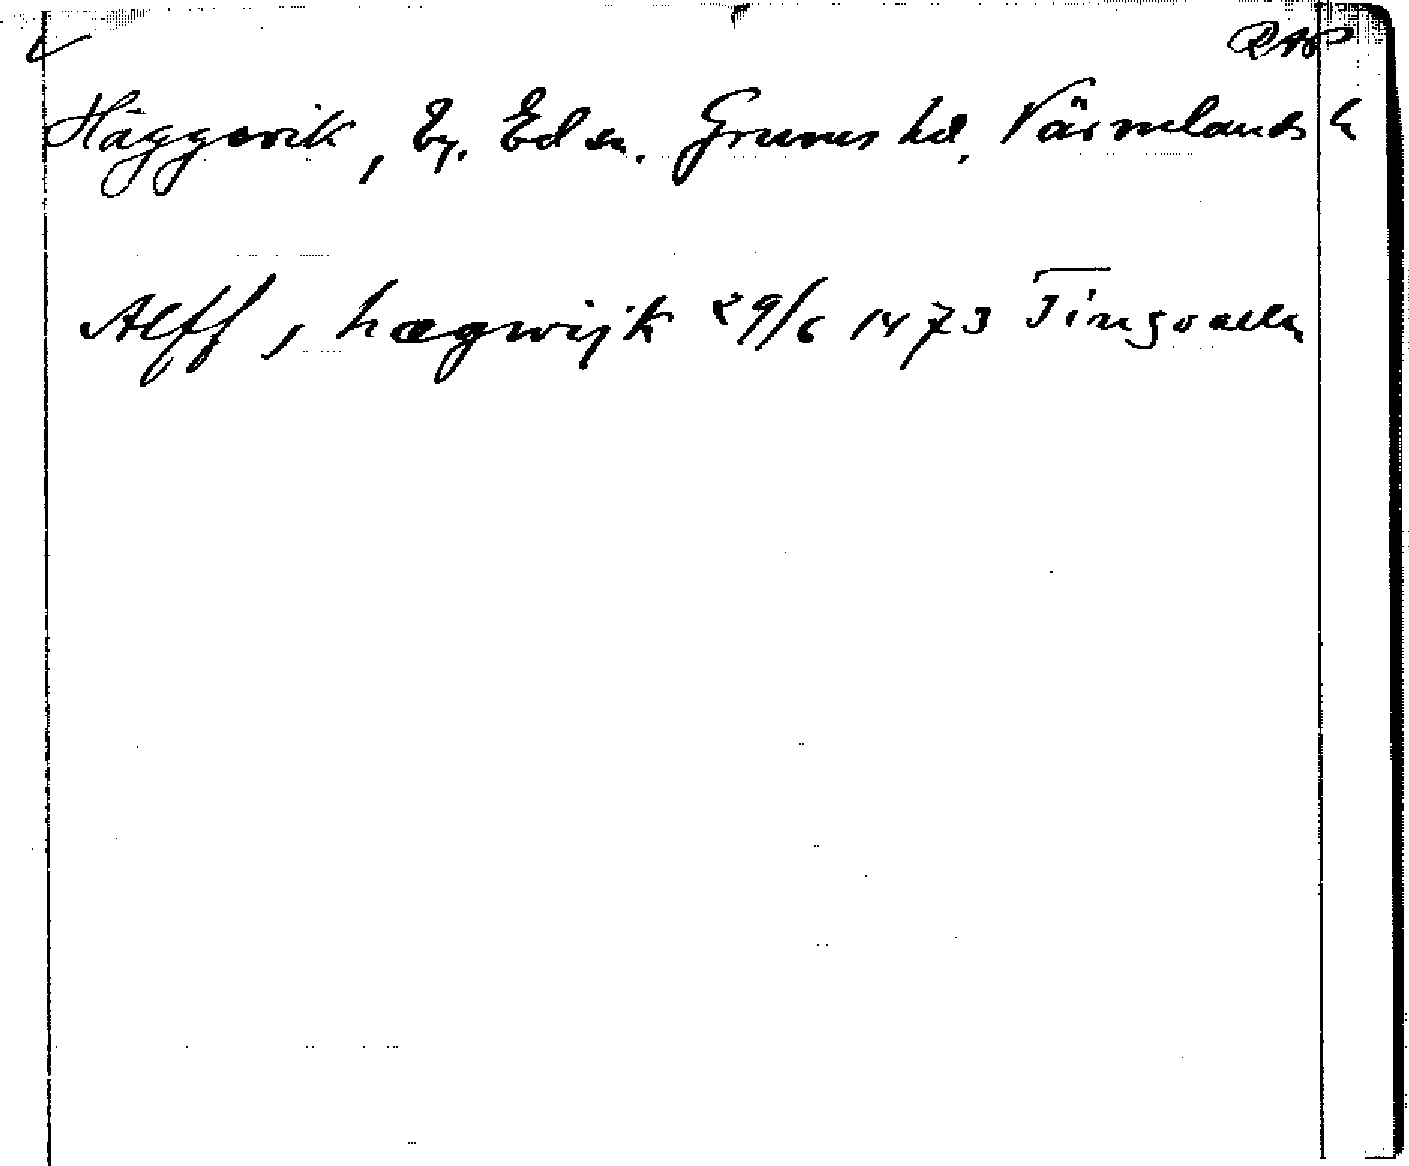 RAP
Häggvik, Ey. Eds sn. Grums hd. Värmlands l.
Alff j hægwijk 29/6 1473 Tingvalla